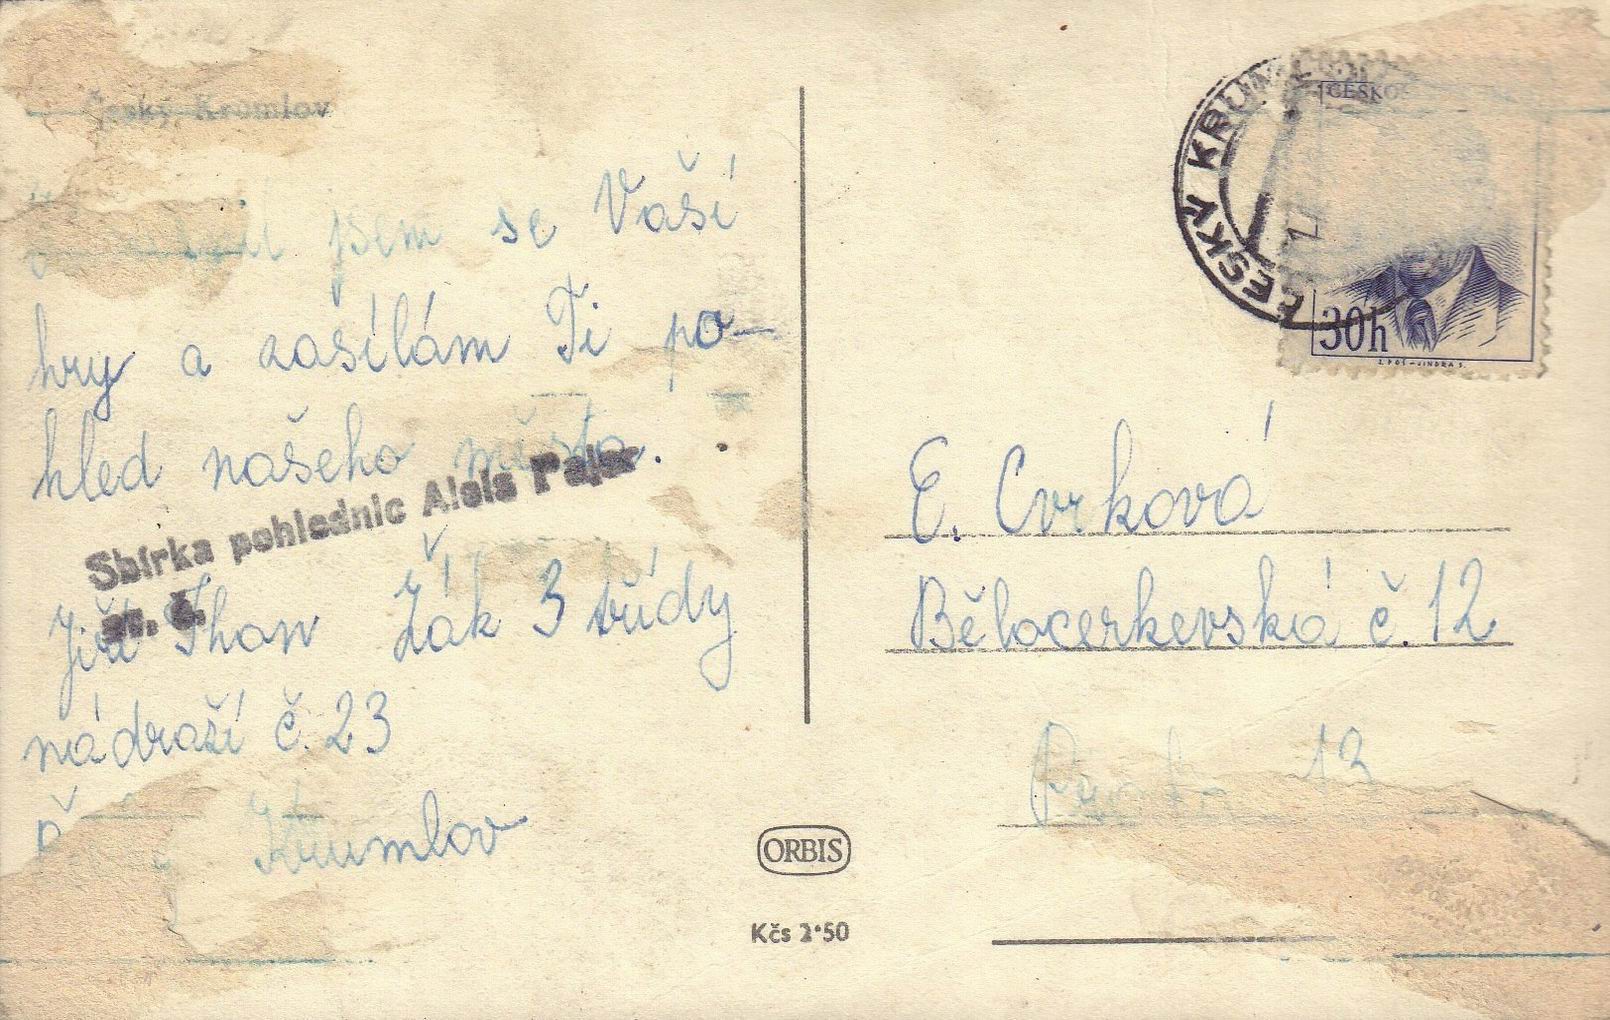 Český Krumlov
jsem se Vaší
hry a zasílám Ti po-
hled našeho města.
Sbírka pohlednic Alois Pajer
Jiří Thon Žák 3 třídy
nádraší č. 23
Krumlov
ORBIS
Kčs 2·50
ČESKÝ KRUM
ČESKO
30h
E. Cvrková
Bělocerkevská č. 12
13